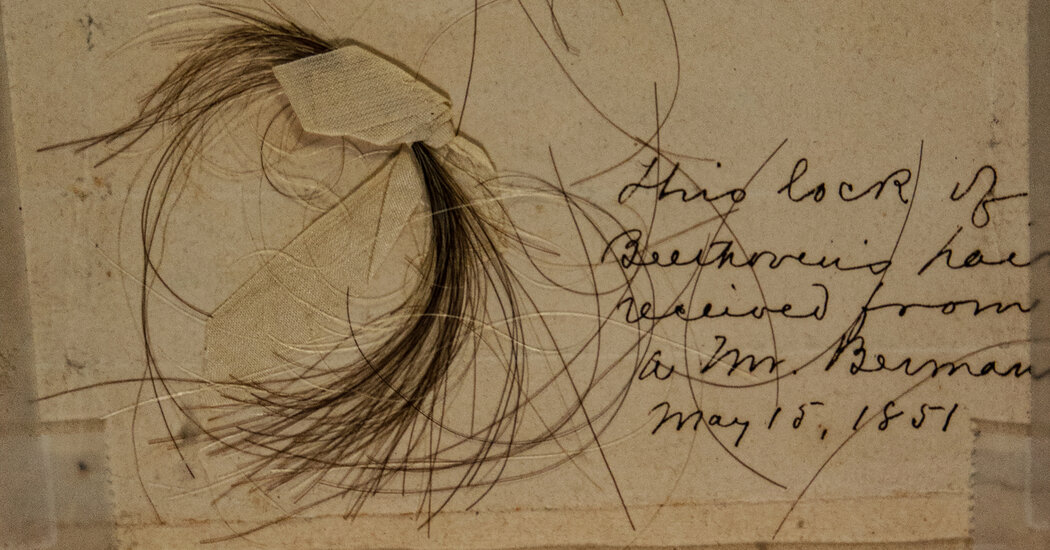 This lock of
Beethoven's hai
received from
a Mr. Berman
May 15, 1851